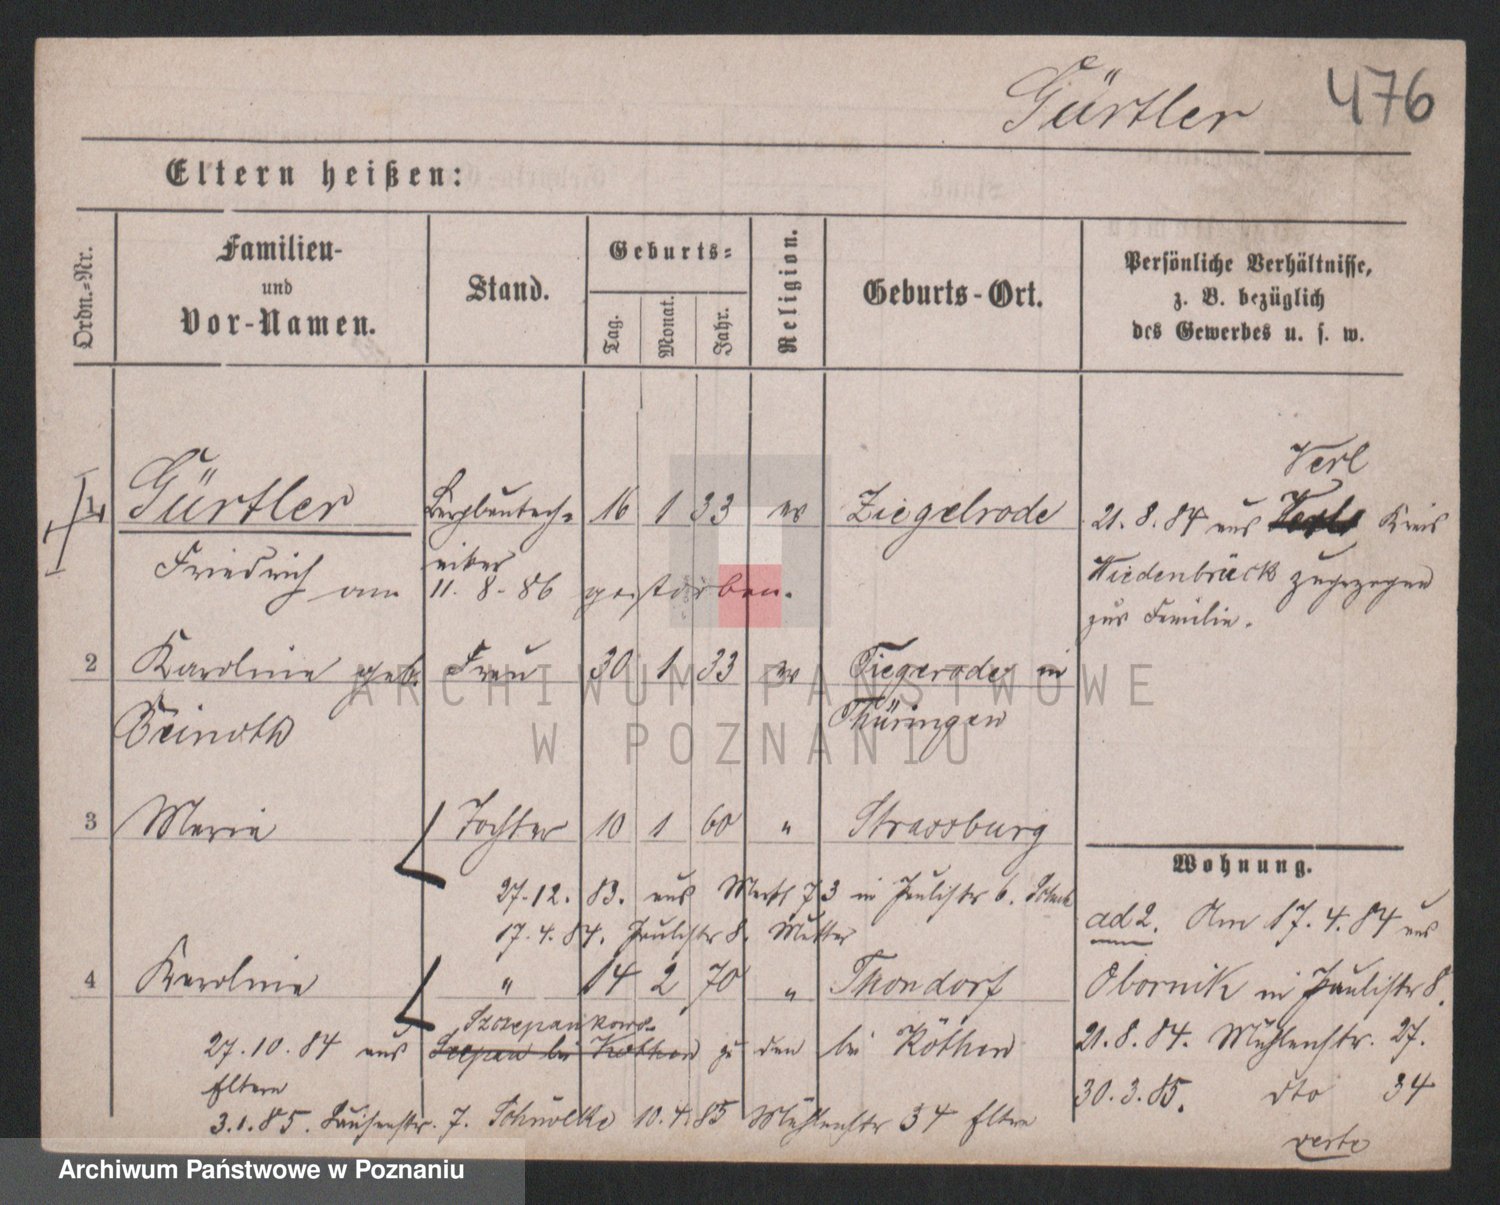 Gürtler 476
Eltern heißen:
Ordn.-Nr.
Familien-
und
Vor-Namen.
Stand.
Geburts-
Tag.
Monat.
Jahr.
Religion.
Geburts-Ort.
Persönliche Verhältnisse,
z. B. bezüglich
des Gewerbes u. s. w.
Verl
1 Gürtler Bergbautech- 16 1 33 ev Ziegelrode 21. 8. 84 aus Kreis
Friedrich niker Wiedenbrück zugezogen
am 11. 8. 86 gestorben. zur Familie.
2 Karoline geb. Frau 30 1 33 ev in
Thüringen
3 Maria Tochter 10 1 60 " Strassburg
Wohnung.
27. 12. 83. aus in Paulistr 6.
17. 4. 84. Paulistr 8. Mutter
ad 2. Am 17. 4. 84 aus
4 Karoline " 14 2 70 " Thondorf Obornik in Paulistr 8.
27. 10. 84 aus zu den bei Köthen 21. 8. 84. Mühlenstr. 27.
Eltern 30. 3. 85. dto 34
3. 1. 85. Louisenstr. 7. 10. 4. 85 Mühlenstr 34 Eltern
verte
ARCHIWUM PAŃSTWOWE
W POZNANIU
Archiwum Państwowe w Poznaniu